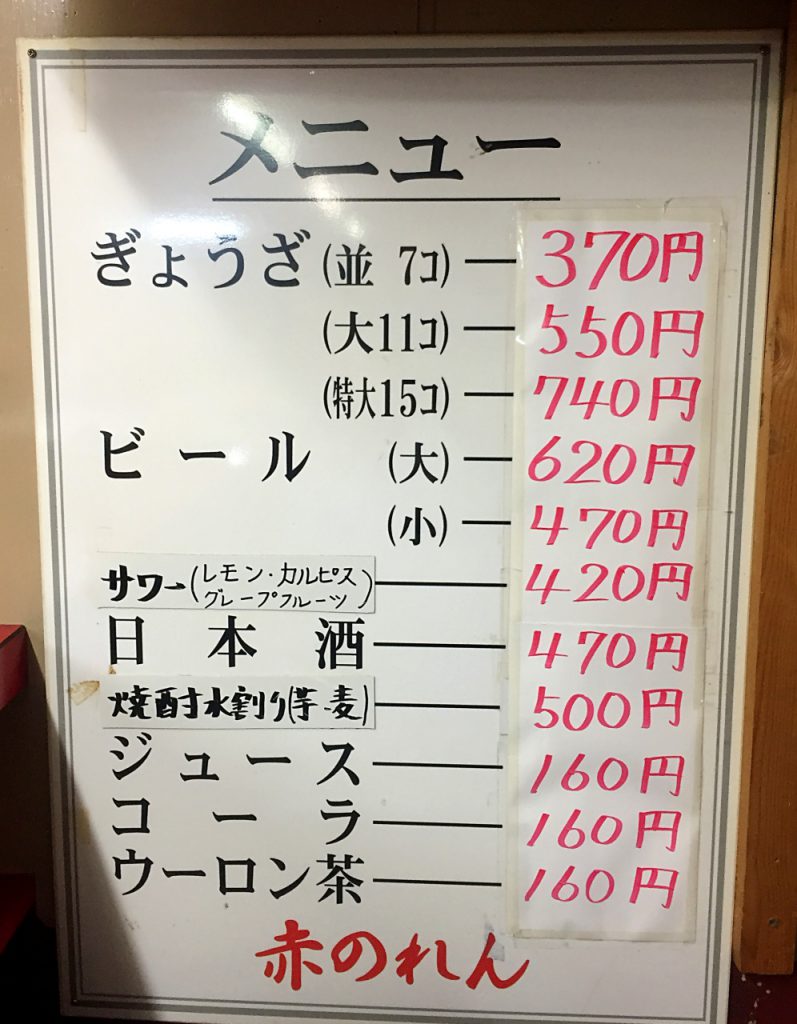 メニュー
ぎょうざ(並 7コ)—370円
(大11コ)—550円
(特大15コ)—740円
ビール (大)—620円
(小)—470円
サワー(レモン・カルピス
グレープフルーツ)—420円
日本酒—470円
焼酎水割り(芋・麦)—500円
ジュース—160円
コーラ—160円
ウーロン茶—160円
赤のれん